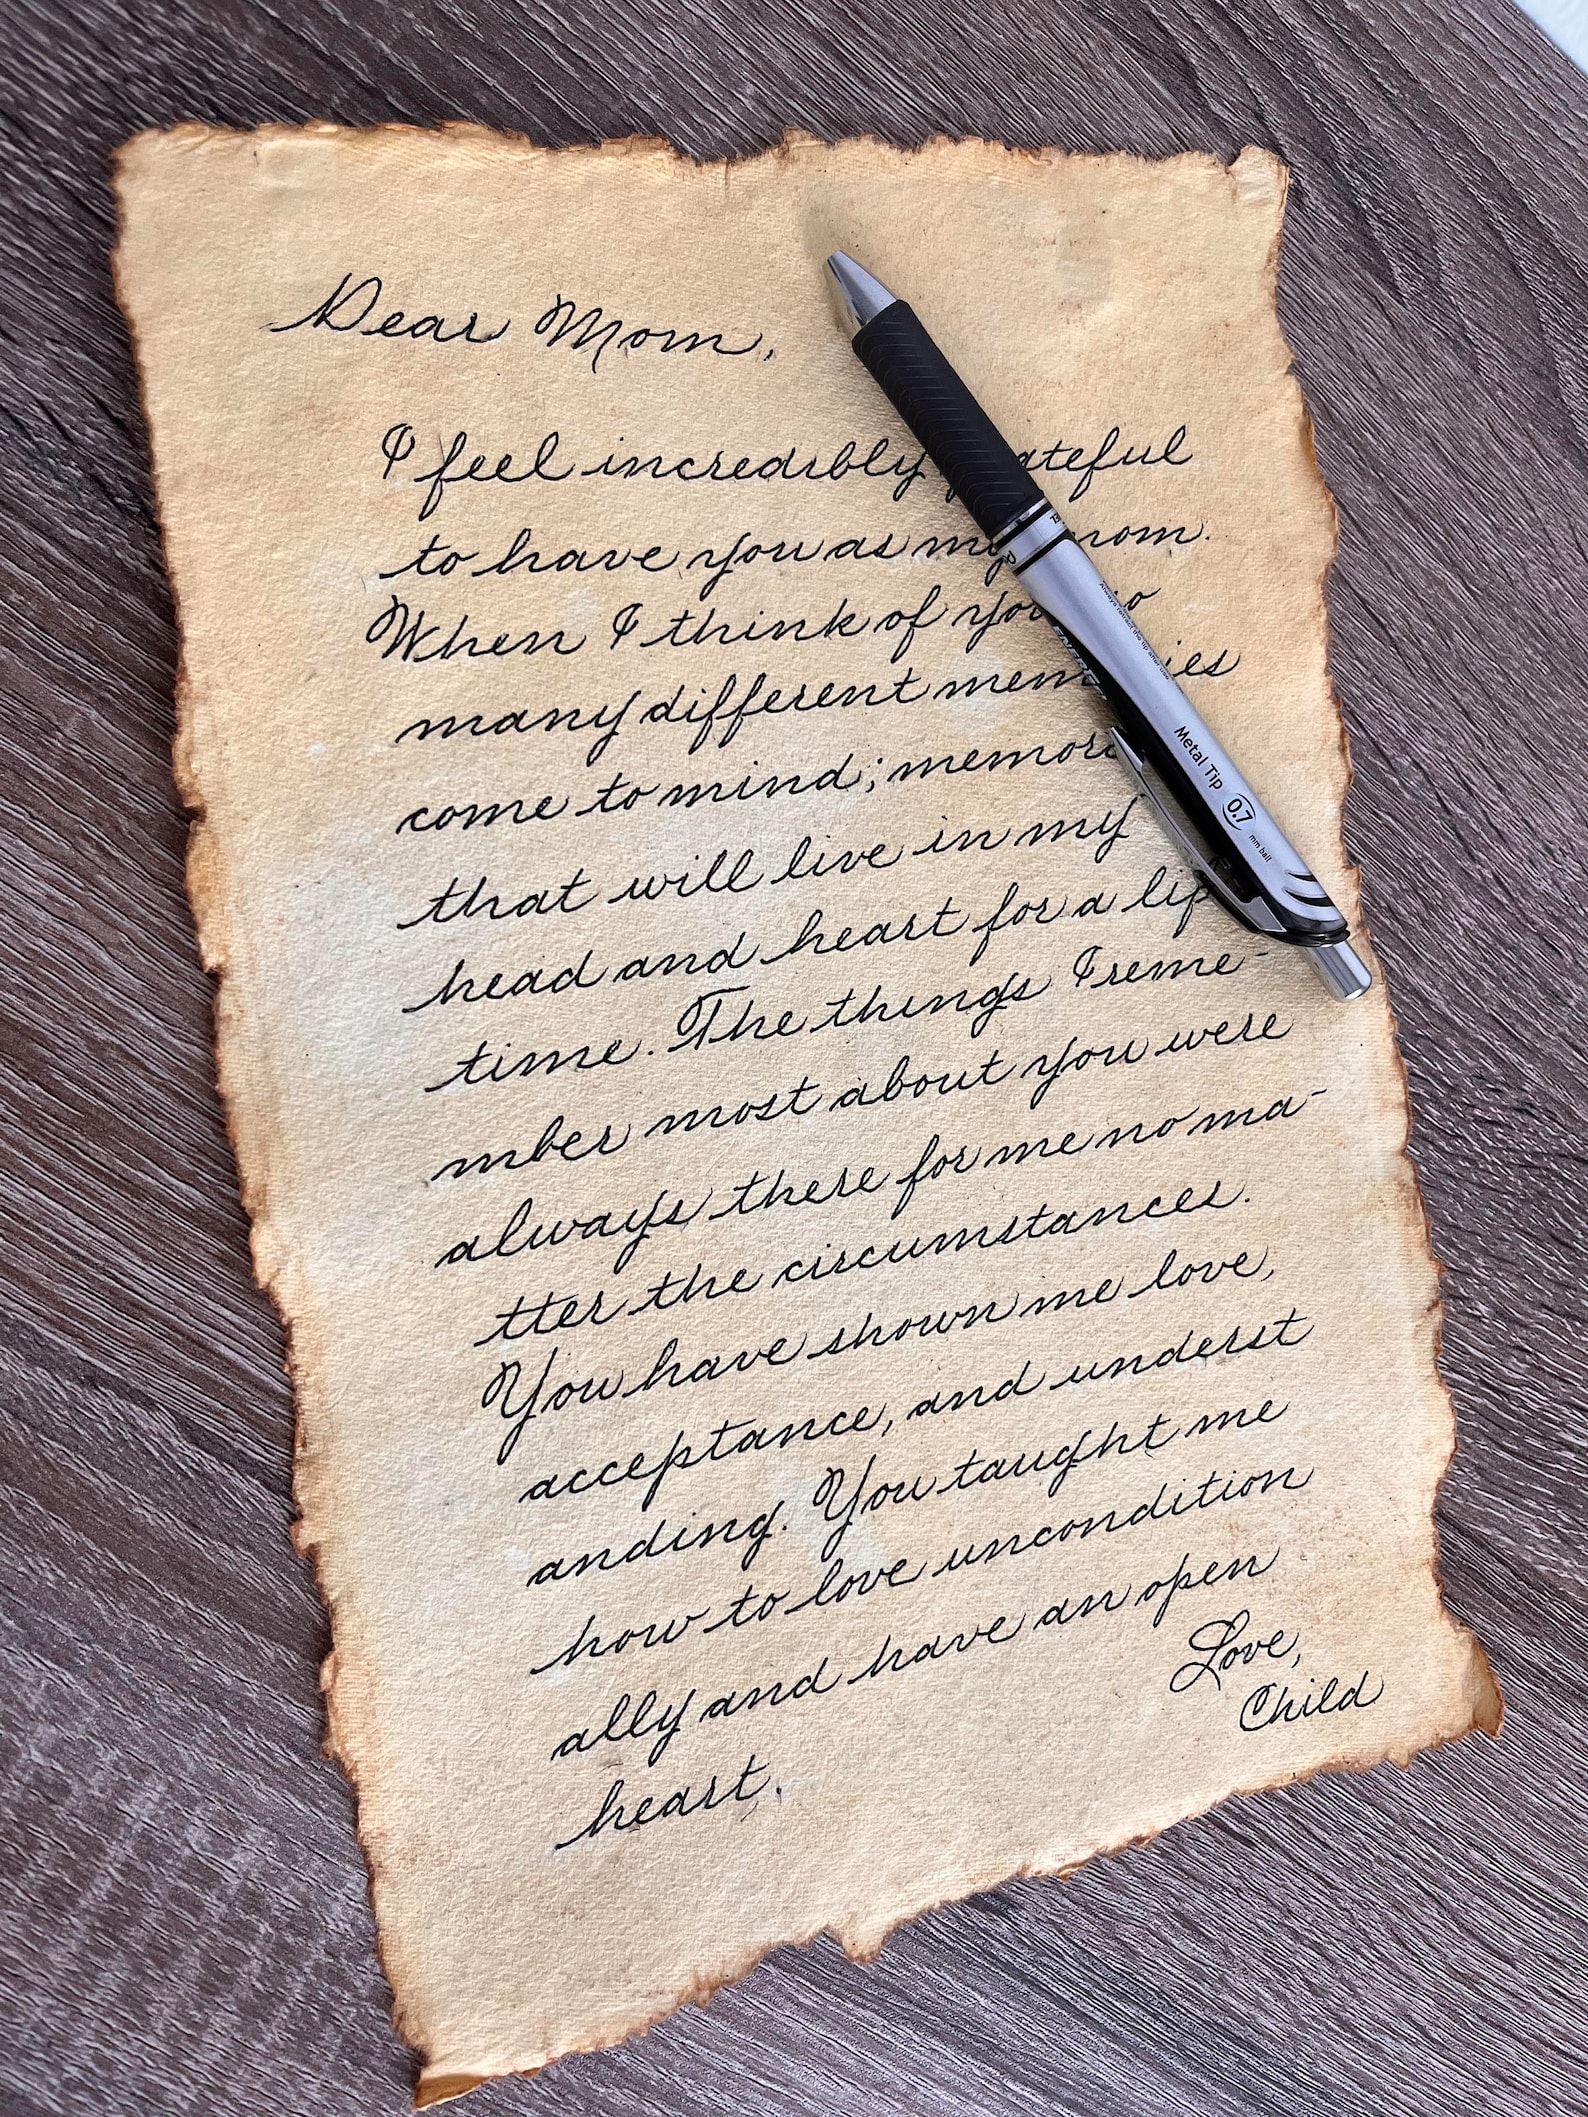 Dear Mom,
I feel incredibly grateful
to have you as my mom.
When I think of you so
many different memories
come to mind; memories
that will live in my
head and heart for a life
time. The things I reme-
mber most about you were
always there for me no ma-
tter the circumstances.
You have shown me love,
acceptance, and underst
anding. You taught me
how to love uncondition
ally and have an open
heart.
Love,
Child
Always retract the tip after use
Metal Tip 0.7 mm ball